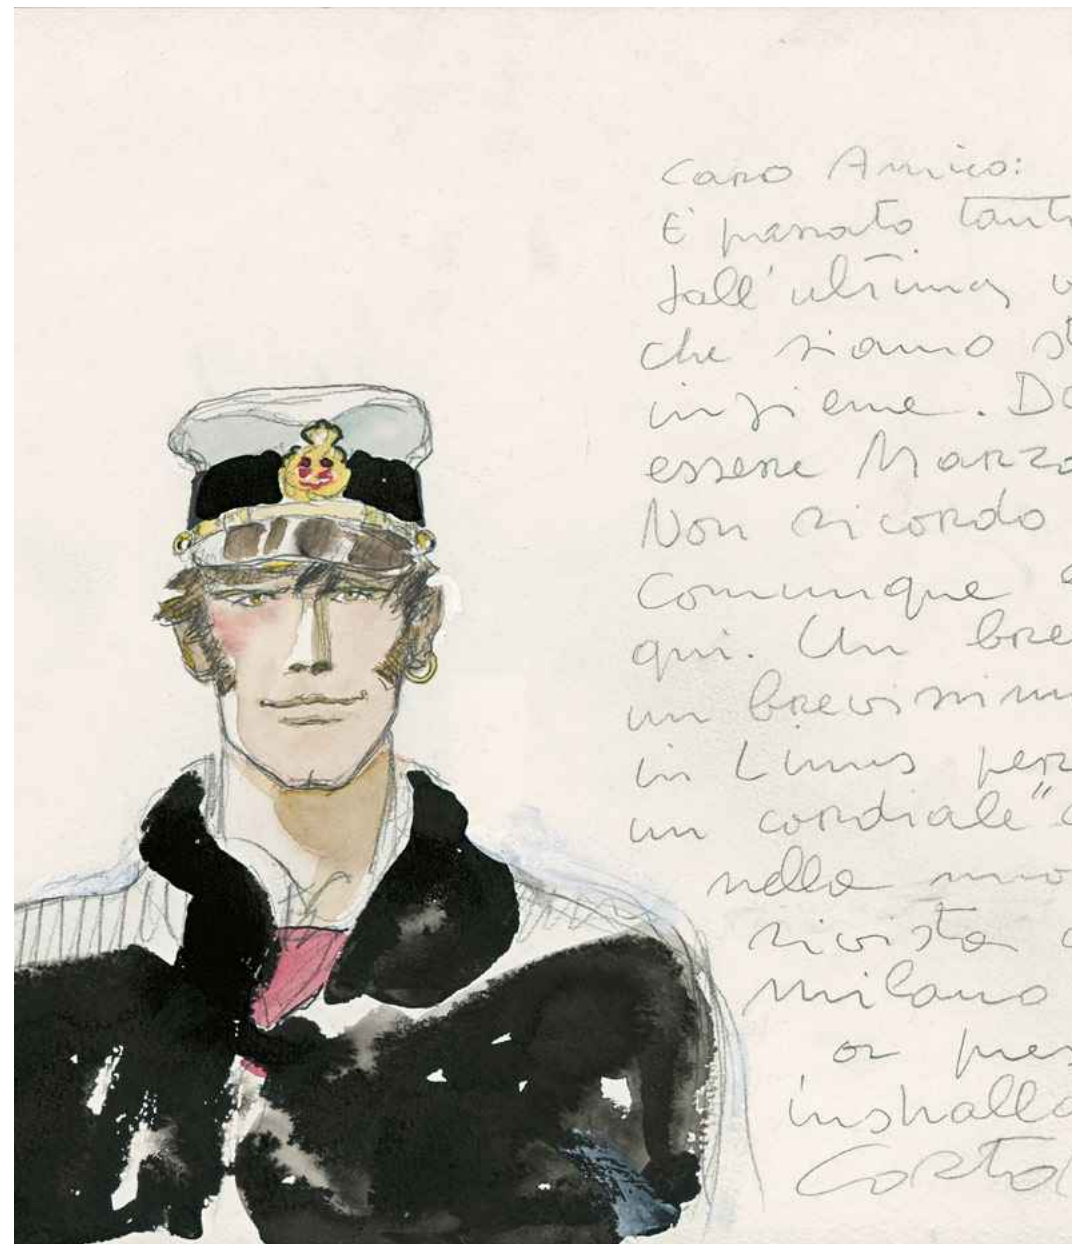 Caro Amico:
E' passato tant
dall'ultima v
che siamo st
insieme. D
essere Marzo
Non ricordo
Comunque
qui. Un bre
un brevissim
in Linus per
un cordiale "
nella nuo
rivista
milano
or pres
inshalla
Corto